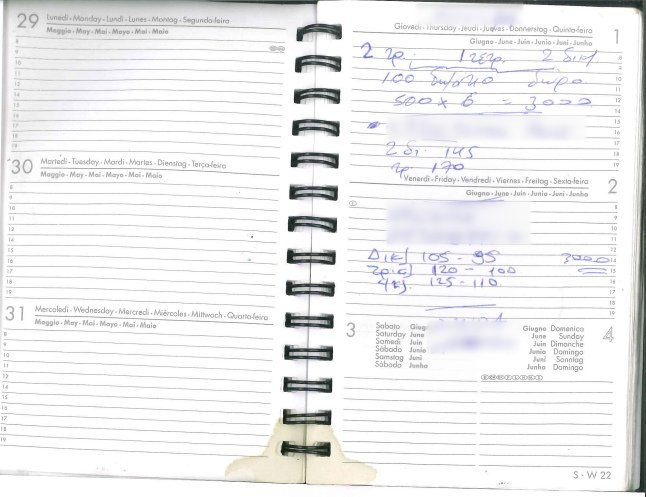 29 Lunedì - Monday - Lundi - Lunes - Montag - Segunda-feira
Maggio - May - Mai - Mayo - Mai - Maio
8
9
10
11
12
13
14
15
16
17
18
19
30 Martedì - Tuesday - Mardi - Martes - Dienstag - Terça-feira
Maggio - May - Mai - Mayo - Mai - Maio
8
9
10
11
12
13
14
15
16
17
18
19
31 Mercoledì - Wednesday - Mercredi - Miércoles - Mittwoch - Quarta-feira
Maggio - May - Mai - Mayo - Mai - Maio
8
9
10
11
12
13
14
15
16
17
18
19
Giovedì - Thursday - Jeudi - Jueves - Donnerstag - Quinta-feira 1
Giugno - June - Juin - Junio - Juni - Junho
2 τρ. 1 τετρ. 2 δικ
100 δωμάτιο δωρο
500 x 6 = 3000
2 δι. 145
τρ 170
Venerdì - Friday - Vendredi - Viernes - Freitag - Sexta-feira 2
Giugno - June - Juin - Junio - Juni - Junho
Δικ) 105 - 95 3000
τρικ) 120 - 100
4κ). 125 - 110
3 Sabato Giug
Saturday June
Samedi Juin
Sábado Junio
Samstag Juni
Sábado Junho
Giugno Domenica 4
June Sunday
Juin Dimanche
Junio Domingo
Juni Sonntag
Junho Domingo
S - W 22